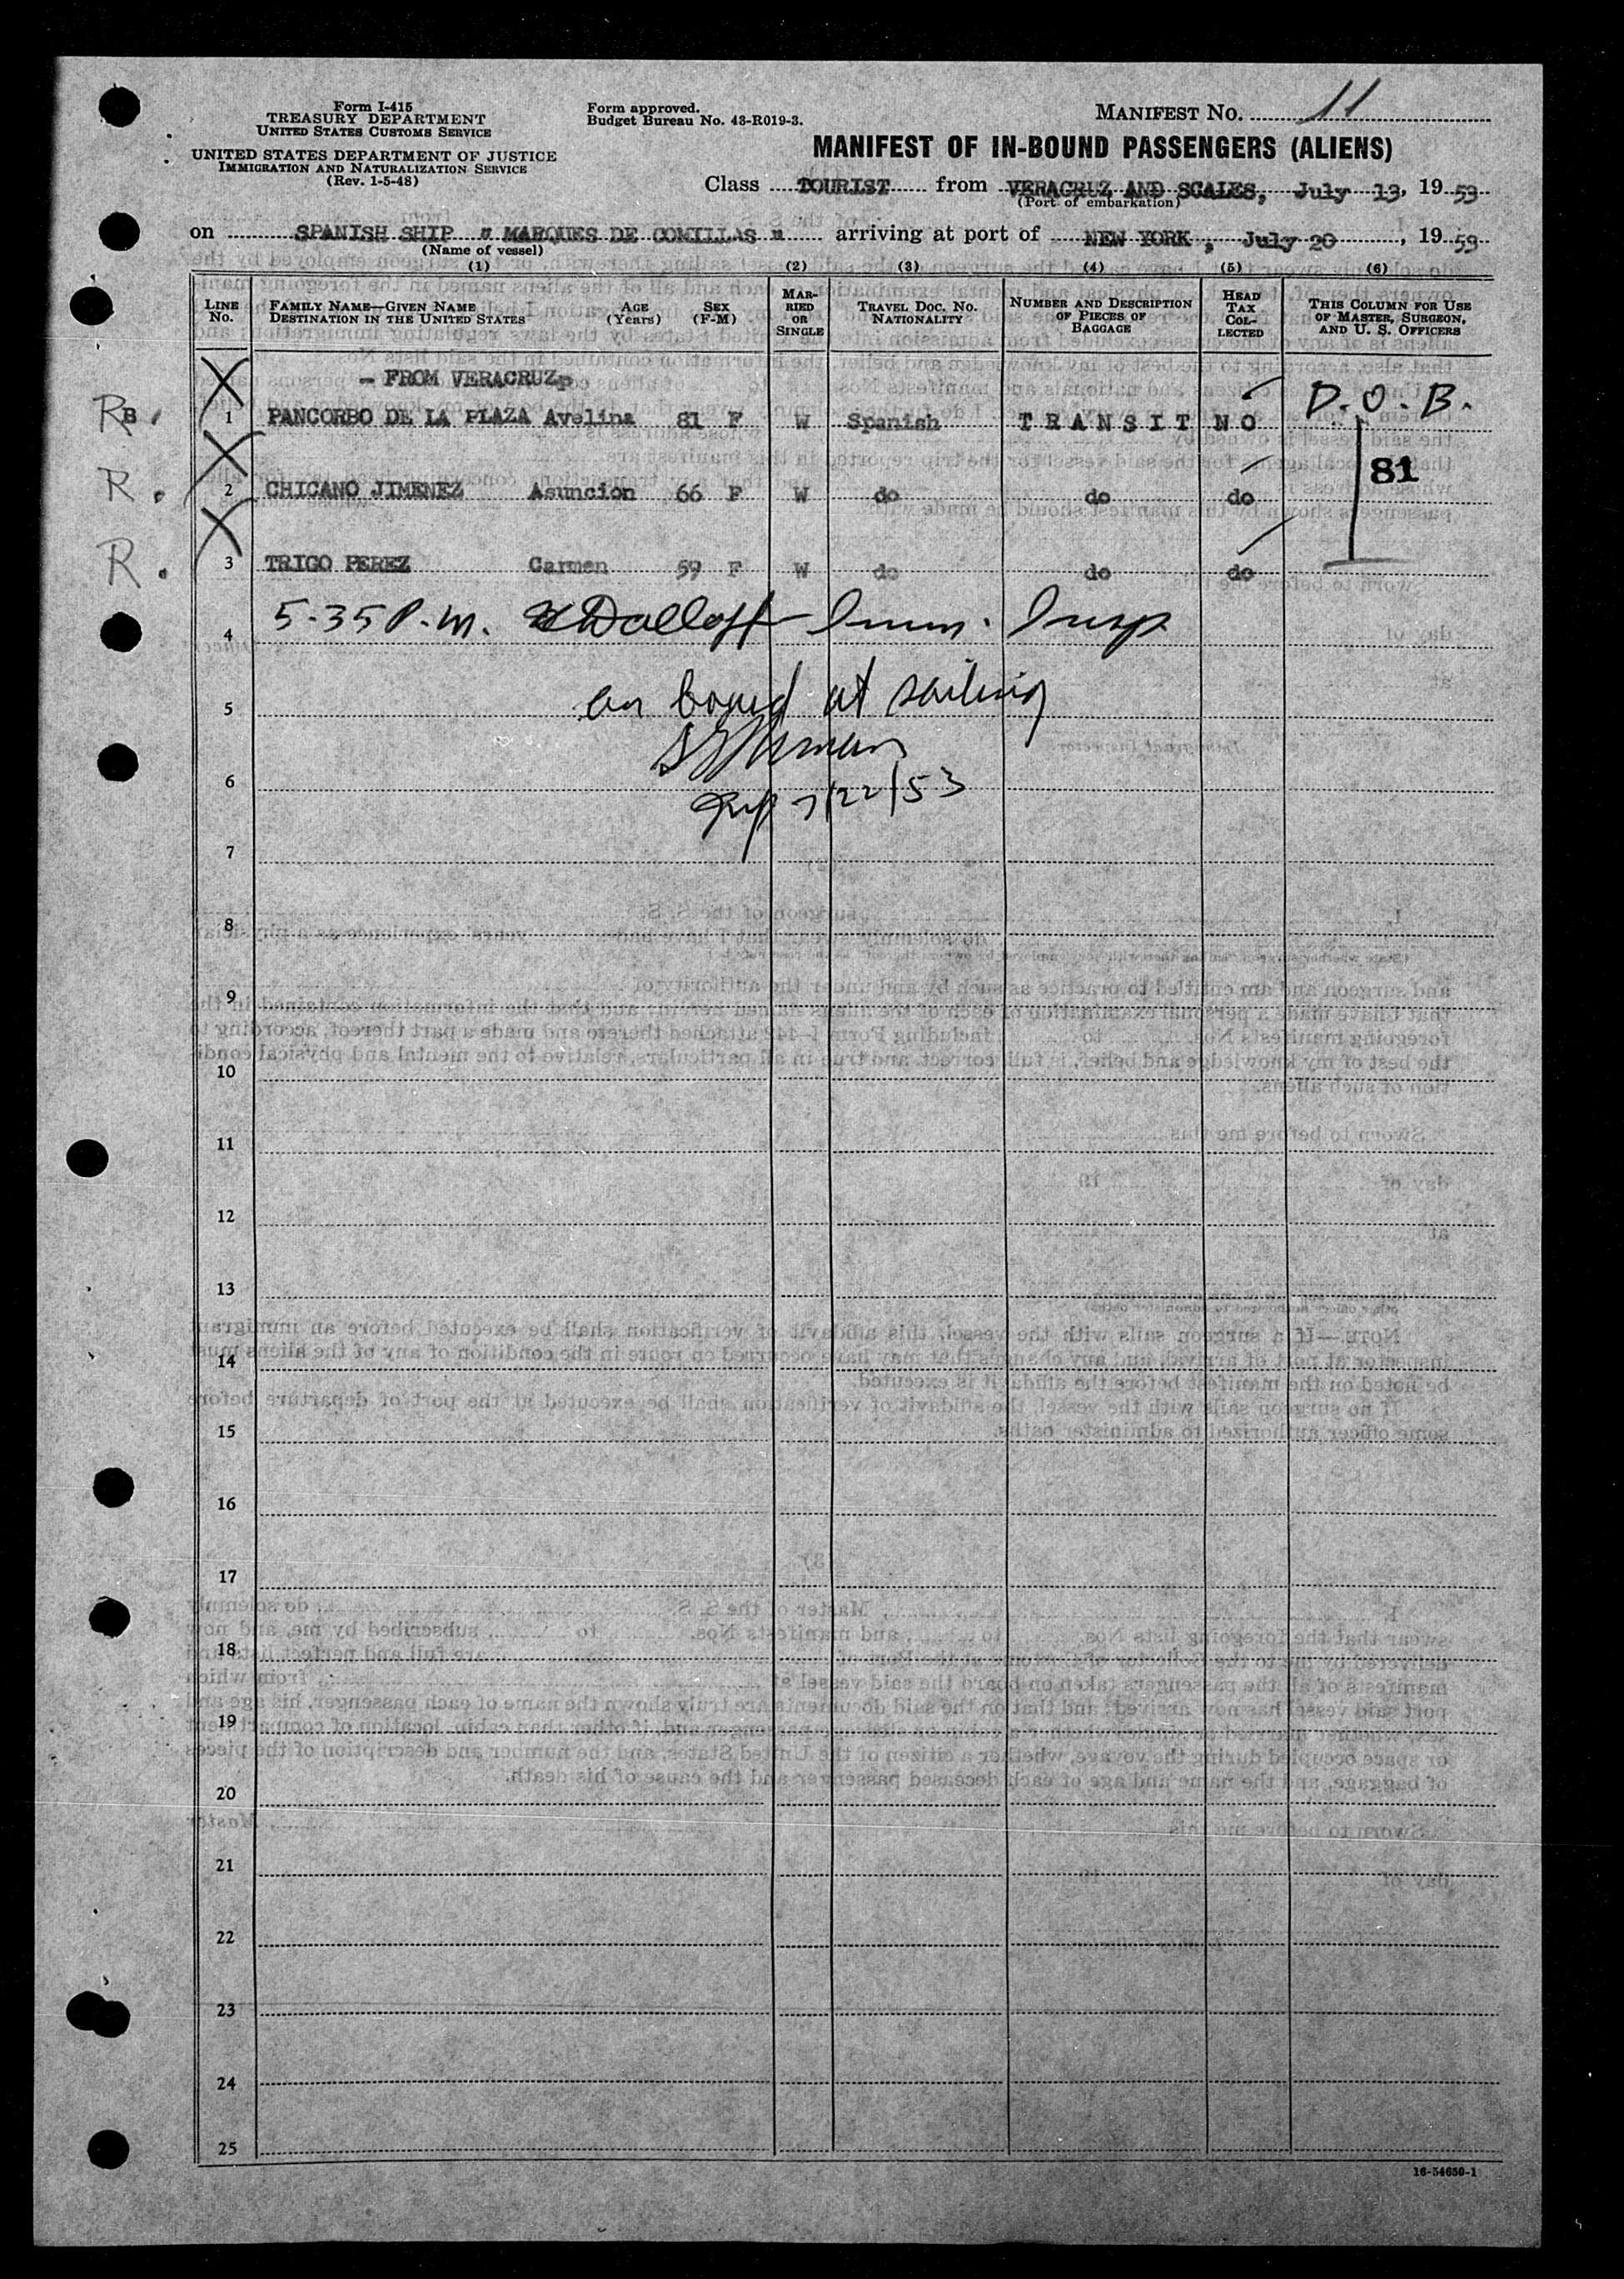 Form I-415
TREASURY DEPARTMENT
UNITED STATES CUSTOMS SERVICE
UNITED STATES DEPARTMENT OF JUSTICE
IMMIGRATION AND NATURALIZATION SERVICE
(Rev. 1-5-48)
Form approved.
Budget Bureau No. 43-R019-3.
MANIFEST No. 11
MANIFEST OF IN-BOUND PASSENGERS (ALIENS)
Class TOURIST from VERACRUZ AND SCALES, July 13, 19 53
(Port of embarkation)
on SPANISH SHIP " MARQUES DE COMILLAS " arriving at port of NEW YORK, July 20, 19 53
(Name of vessel)
(1) (2) (3) (4) (5) (6)
LINE No. FAMILY NAME—GIVEN NAME DESTINATION IN THE UNITED STATES AGE (Years) SEX (F-M) MARRIED OR SINGLE TRAVEL DOC. No. NATIONALITY NUMBER AND DESCRIPTION OF PIECES OF BAGGAGE HEAD TAX COLLECTED THIS COLUMN FOR USE OF MASTER, SURGEON, AND U. S. OFFICERS
- FROM VERACRUZ
RB. 1 PANCORBO DE LA PLAZA Avelina 81 F W Spanish T R A N S I T N O P.O.B.
81
R. 2 CHICANO JIMENEZ Asuncion 66 F W do do do
R. 3 TRIGO PEREZ Carmen 59 F W do do do
4 5-35 P.M. Imm. Insp
5 on board at sailing
6 Insp 7/22/53
7
8
9
10
11
12
13
14
15
16
17
18
19
20
21
22
23
24
25
16-54650-1